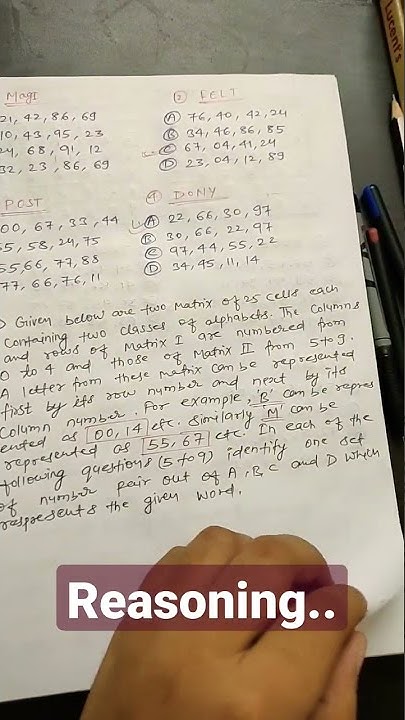 Lucent's
MagI
21, 42, 86, 69
10, 43, 95, 23
24, 68, 91, 12
32, 23, 86, 69
② FELT
Ⓐ 76, 40, 42, 24
Ⓑ 34, 46, 86, 85
Ⓒ 67, 04, 41, 24
Ⓓ 23, 04, 12, 89
POST
00, 67, 33, 44
55, 58, 24, 75
55, 66, 77, 88
77, 66, 76, 11
④ DONY
Ⓐ 22, 66, 30, 97
Ⓑ 30, 66, 22, 97
Ⓒ 97, 44, 55, 22
Ⓓ 34, 45, 11, 14
Given below are two matrix of 25 cells each
containing two classes of alphabets. The Columns
and rows of Matrix I are numbered from
0 to 4 and those of Matrix II from 5 to 9.
A letter from these matrix can be represented
first by its row number and next by its
Column number. For example, 'B' can be repres
ented as 00, 14 etc. Similarly 'M' can be
represented as 55, 67 etc. In each of the
following questions (5 to 9) identify one set
of number pair out of A, B, C and D which
respresents the given word.
Reasoning..